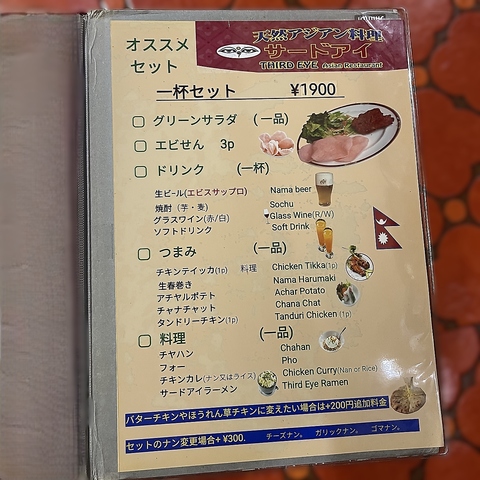 オススメ
セット
天然アジアン料理
サードアイ
THIRD EYE Asian Restaurant
一杯セット ¥1900
グリーンサラダ (一品)
エビせん 3p
ドリンク (一杯)
生ビール(エビスサッブロ) Nama beer
焼酎 (芋・麦) Sochu
グラスワイン(赤/白) ♥Glass Wine(R/W)
ソフトドリンク Soft Drink
つまみ (一品)
チキンテイッカ(1p) 料理 Chicken Tikka(1p)
生春巻き Nama Harumaki
アチヤルポテト Achar Potato
チャナチャット Chana Chat
タンドリーチキン(1p) Tanduri Chicken (1p)
料理 (一品)
チヤハン Chahan
フォー Pho
チキンカレ(ナン又はライス) Chicken Curry(Nan or Rice)
サードアイラーメン Third Eye Ramen
バターチキンやほうれん草チキンに変えたい場合は+200円追加料金
セットのナン変更場合+ ¥300. チーズナン。 ガリックナン。 ゴマナン。